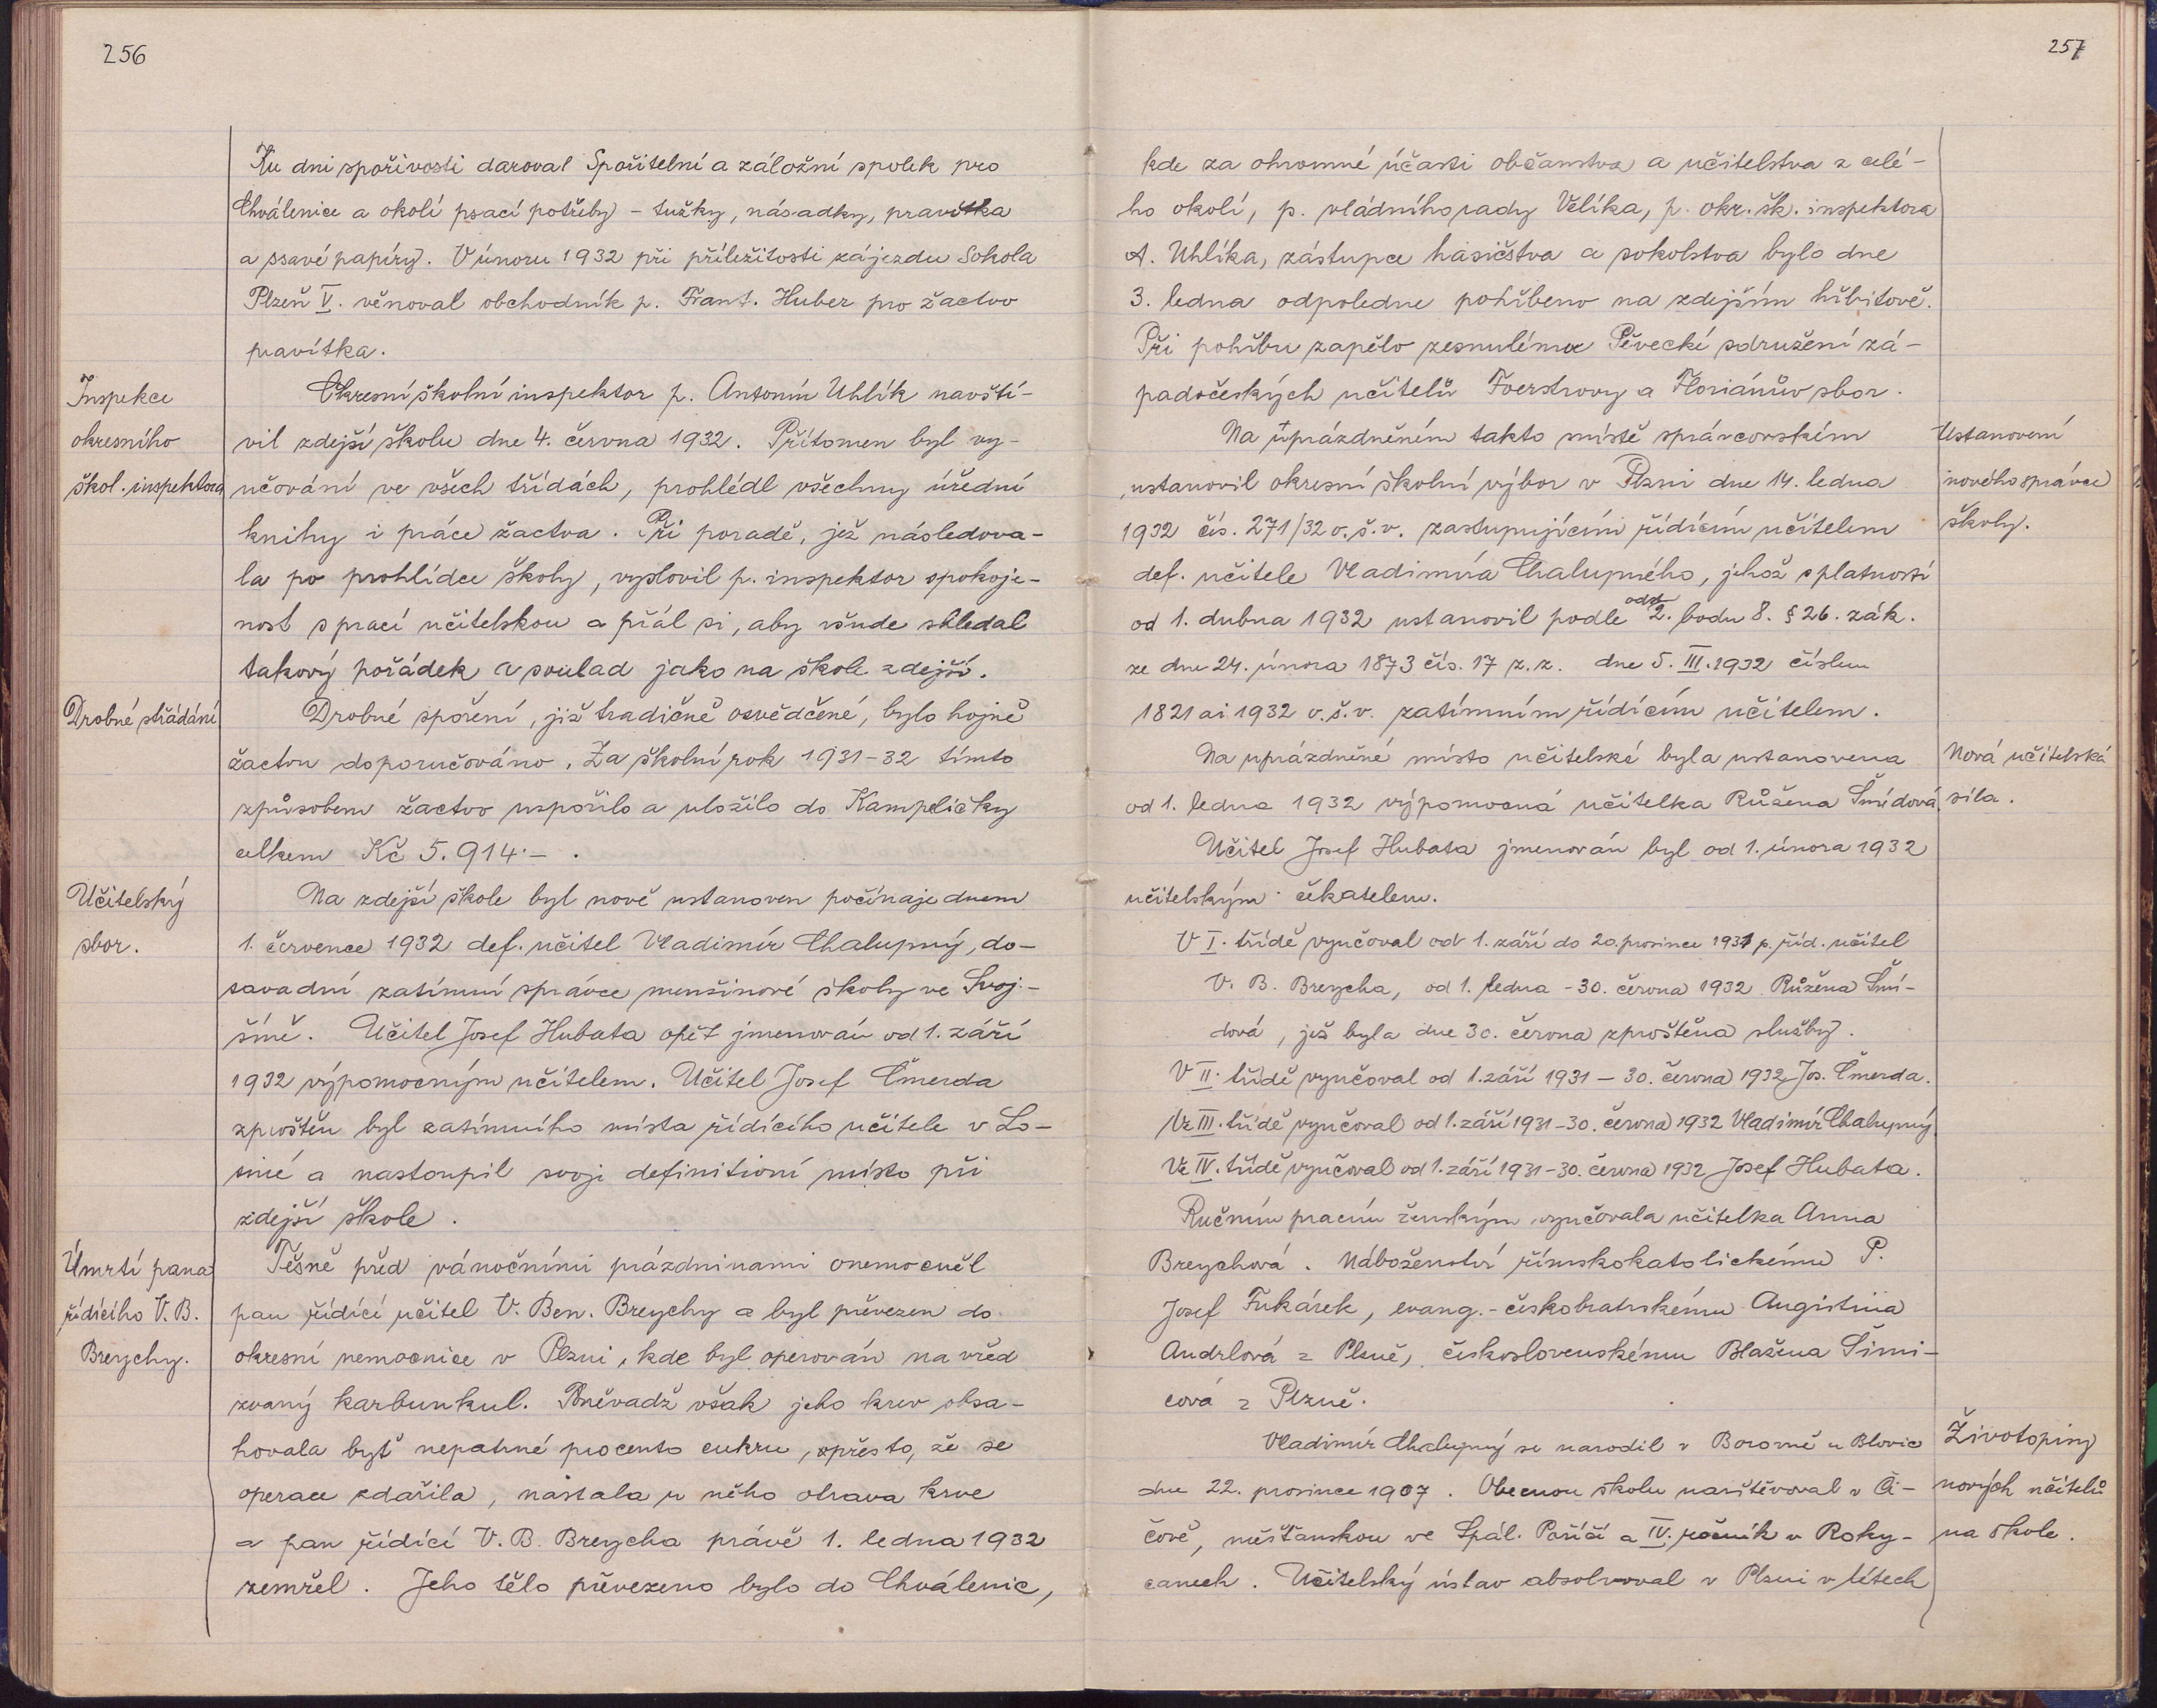 256
Ku dni spořivosti daroval Spořitelní a záložní spolek pro
Chválenice a okolí psací potřeby - tužky, násadky, pravítka
a ssavé papíry. V únoru 1932 při příležitosti zájezdu Sokola
Plzeň V. věnoval obchodník p. Frant. Huber pro žactvo
pravítka.
Inspekce
okresního
škol. inspektora
Okresní školní inspektor p. Antonín Uhlík navští-
vil zdejší školu dne 4. června 1932. Přítomen byl vy-
učování ve všech třídách, prohlédl všechny úřední
knihy i práce žactva. Při poradě, jež následova-
la po prohlídce školy, vyslovil p. inspektor spokoje-
nost s prací učitelskou a přál si, aby všude shledal
takový pořádek a soulad jako na škole zdejší.
Drobné střádání
Drobné spoření, již tradičně osvědčené, bylo hojně
žactvu doporučováno. Za školní rok 1931-32 tímto
způsobem žactvo uspořilo a uložilo do Kampeličky
celkem Kč 5.914·- .
Učitelský
sbor.
Na zdejší škole byl nově ustanoven počínaje dnem
1. července 1932 def. učitel Vladimír Chalupný, do-
savadní zatímní správce menšinové školy ve Svoj-
šíně. Učitel Josef Hubata opět jmenován od 1. září
1932 výpomocným učitelem. Učitel Josef Čmerda
zproštěn byl zatímního místa řídícího učitele v Lo-
siné a nastoupil svoje definitivní místo při
zdejší škole.
Úmrtí pana
řídícího V. B.
Breychy.
Těsně před vánočními prázdninami onemocněl
pan řídící učitel V. Ben. Breychy a byl převezen do
okresní nemocnice v Plzni, kde byl operován na vřed
zvaný karbunkul. Poněvadž však jeho krev obsa-
hovala byť nepatrné procento cukru, spřesto, že se
operace zdařila, nastala u něho otrava krve
a pan řídící V. B. Breycha právě 1. ledna 1932
zemřel. Jeho tělo převezeno bylo do Chválenic,
257
kde za ohromné účasti občanstva a učitelstva z celé-
ho okolí, p. vládního rady Velíka, p. okr. šk. inspektora
A. Uhlíka, zástupce hasičstva a sokolstva bylo dne
3. ledna odpoledne pohřbeno na zdejším hřbitově.
Při pohřbu zapělo zesnulému Pěvecké sdružení zá-
padočeských učitelů Foerstrovy a Floriánův sbor.
Ustanovení
nového správce
školy.
Na uprázdněném takto místě správcovském
ustanovil okresní školní výbor v Plzni dne 14. ledna
1932 čís. 271/32 o.š.v. zastupujícím řídícím učitelem
def. učitele Vladimíra Chalupného, jehož s platností
od 1. dubna 1932 ustanovil podle odst. 2. bodu 8. § 26. zák.
ze dne 24. února 1873 čís. 17 z. z. dne 5. III. 1932 číslem
1821 ai 1932 o.š.v. zatímním řídícím učitelem.
Nová učitelská
síla.
Na uprázdněné místo učitelské byla ustanovena
od 1. ledna 1932 výpomocná učitelka Růžena Šmídová.
Učitel Josef Hubata jmenován byl od 1. února 1932
učitelským čekatelem.
V I. třídě vyučoval od 1. září do 20. prosince 1931 p. říd. učitel
V. B. Breycha, od 1. ledna - 30. června 1932 Růžena Šmí-
dová, jež byla dne 30. června zproštěna služby.
V II. třídě vyučoval od 1. září 1931 - 30. června 1932 Jos. Čmerda.
Ve III. třídě vyučoval od 1. září 1931 - 30. června 1932 Vladimír Chalupný.
Ve IV. třídě vyučoval od 1. září 1931 - 30. června 1932 Josef Hubata.
Ručním pracím ženským vyučovala učitelka Anna
Breychová. Náboženství římskokatolickému P.
Josef Fukárek, evang.-českobratrskému Angistina
Andrlová z Plzně, československému Blažena Šimi-
cová z Plzně.
Životopisy
nových učitelů
na škole.
Vladimír Chalupný se narodil v Borovně u Blovic
dne 22. prosince 1907. Obecnou školu navštěvoval v Či-
čově, měšťanskou ve Spál. Poříčí a IV. ročník v Roky-
canech. Učitelský ústav absolvoval v Plzni v létech